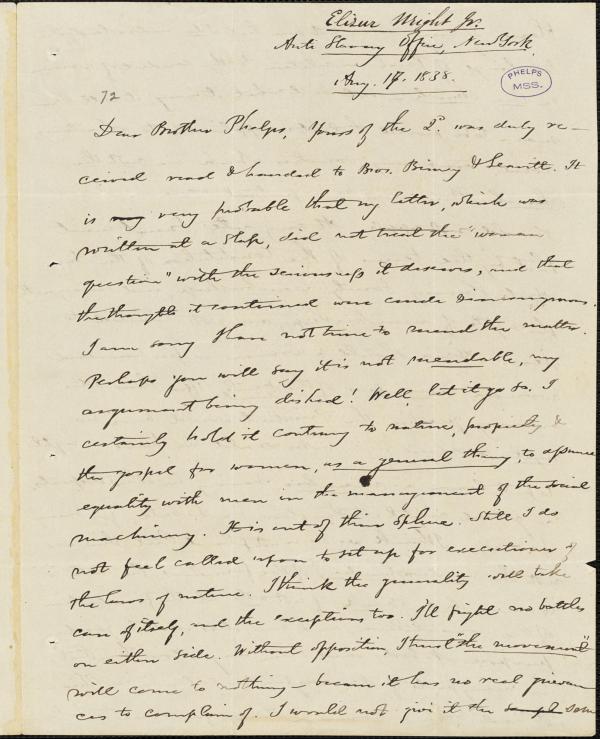 Elizur Wright Jr.
Anti Slavery Office, New York
Aug. 17. 1838.
PHELPS
MSS.
72
Dear Brother Phelps, Yours of the 2d. was duly re-
ceived read & handed to Bros. Birney & Leavitt. It
is very probable that my letter, which was
written at a slap, did not treat the "woman
question" with the seriousness it deserves, and that
the thoughts it contained were crude &
I am sorry I have not time to mend the matter.
Perhaps you will say it is not mendable, my
argument being dished! Well, let it go so. I
certainly hold it contrary to nature, propriety &
the gospel for women, as a general thing, to assume
equality with men in the management of the social
machinery. It is out of their sphere. Still I do
not feel called upon to set up for executioner of
the laws of nature. I think the generality will take
care of itself, and the exceptions too. I'll fight no battles
on either side. Without opposition, I trust "the movement"
will come to nothing — because it has no real grievan
ces to complain of. I would not give it the